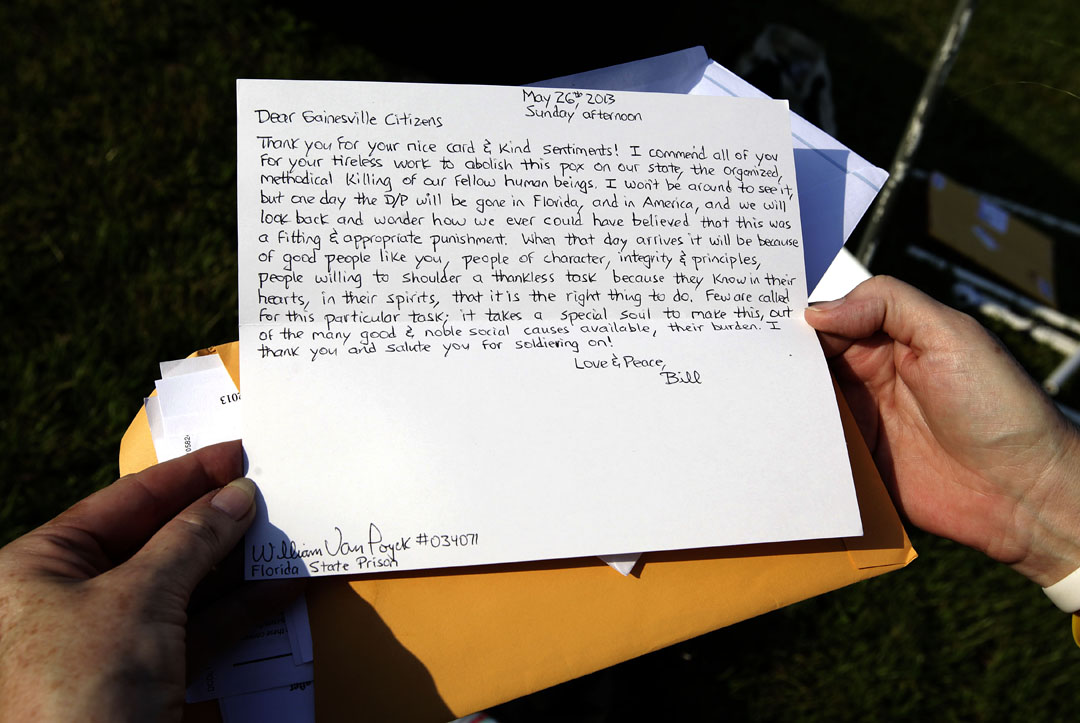 May 26th, 2013
Sunday afternoon
Dear Gainesville Citizens
Thank you for your nice card & kind sentiments! I commend all of you
for your tireless work to abolish this pox on our state, the organized,
methodical killing of our fellow human beings. I won't be around to see it,
but one day the D/P will be gone in Florida, and in America, and we will
look back and wonder how we ever could have believed that this was
a fitting & appropriate punishment. When that day arrives it will be because
of good people like you, people of character, integrity & principles,
people willing to shoulder a thankless task because they know in their
hearts, in their spirits, that it is the right thing to do. Few are called
for this particular task; it takes a special soul to make this, out
of the many good & noble social causes available, their burden. I
thank you and salute you for soldiering on!
Love & Peace,
Bill
William Van Poyck #034071
Florida State Prison
2013